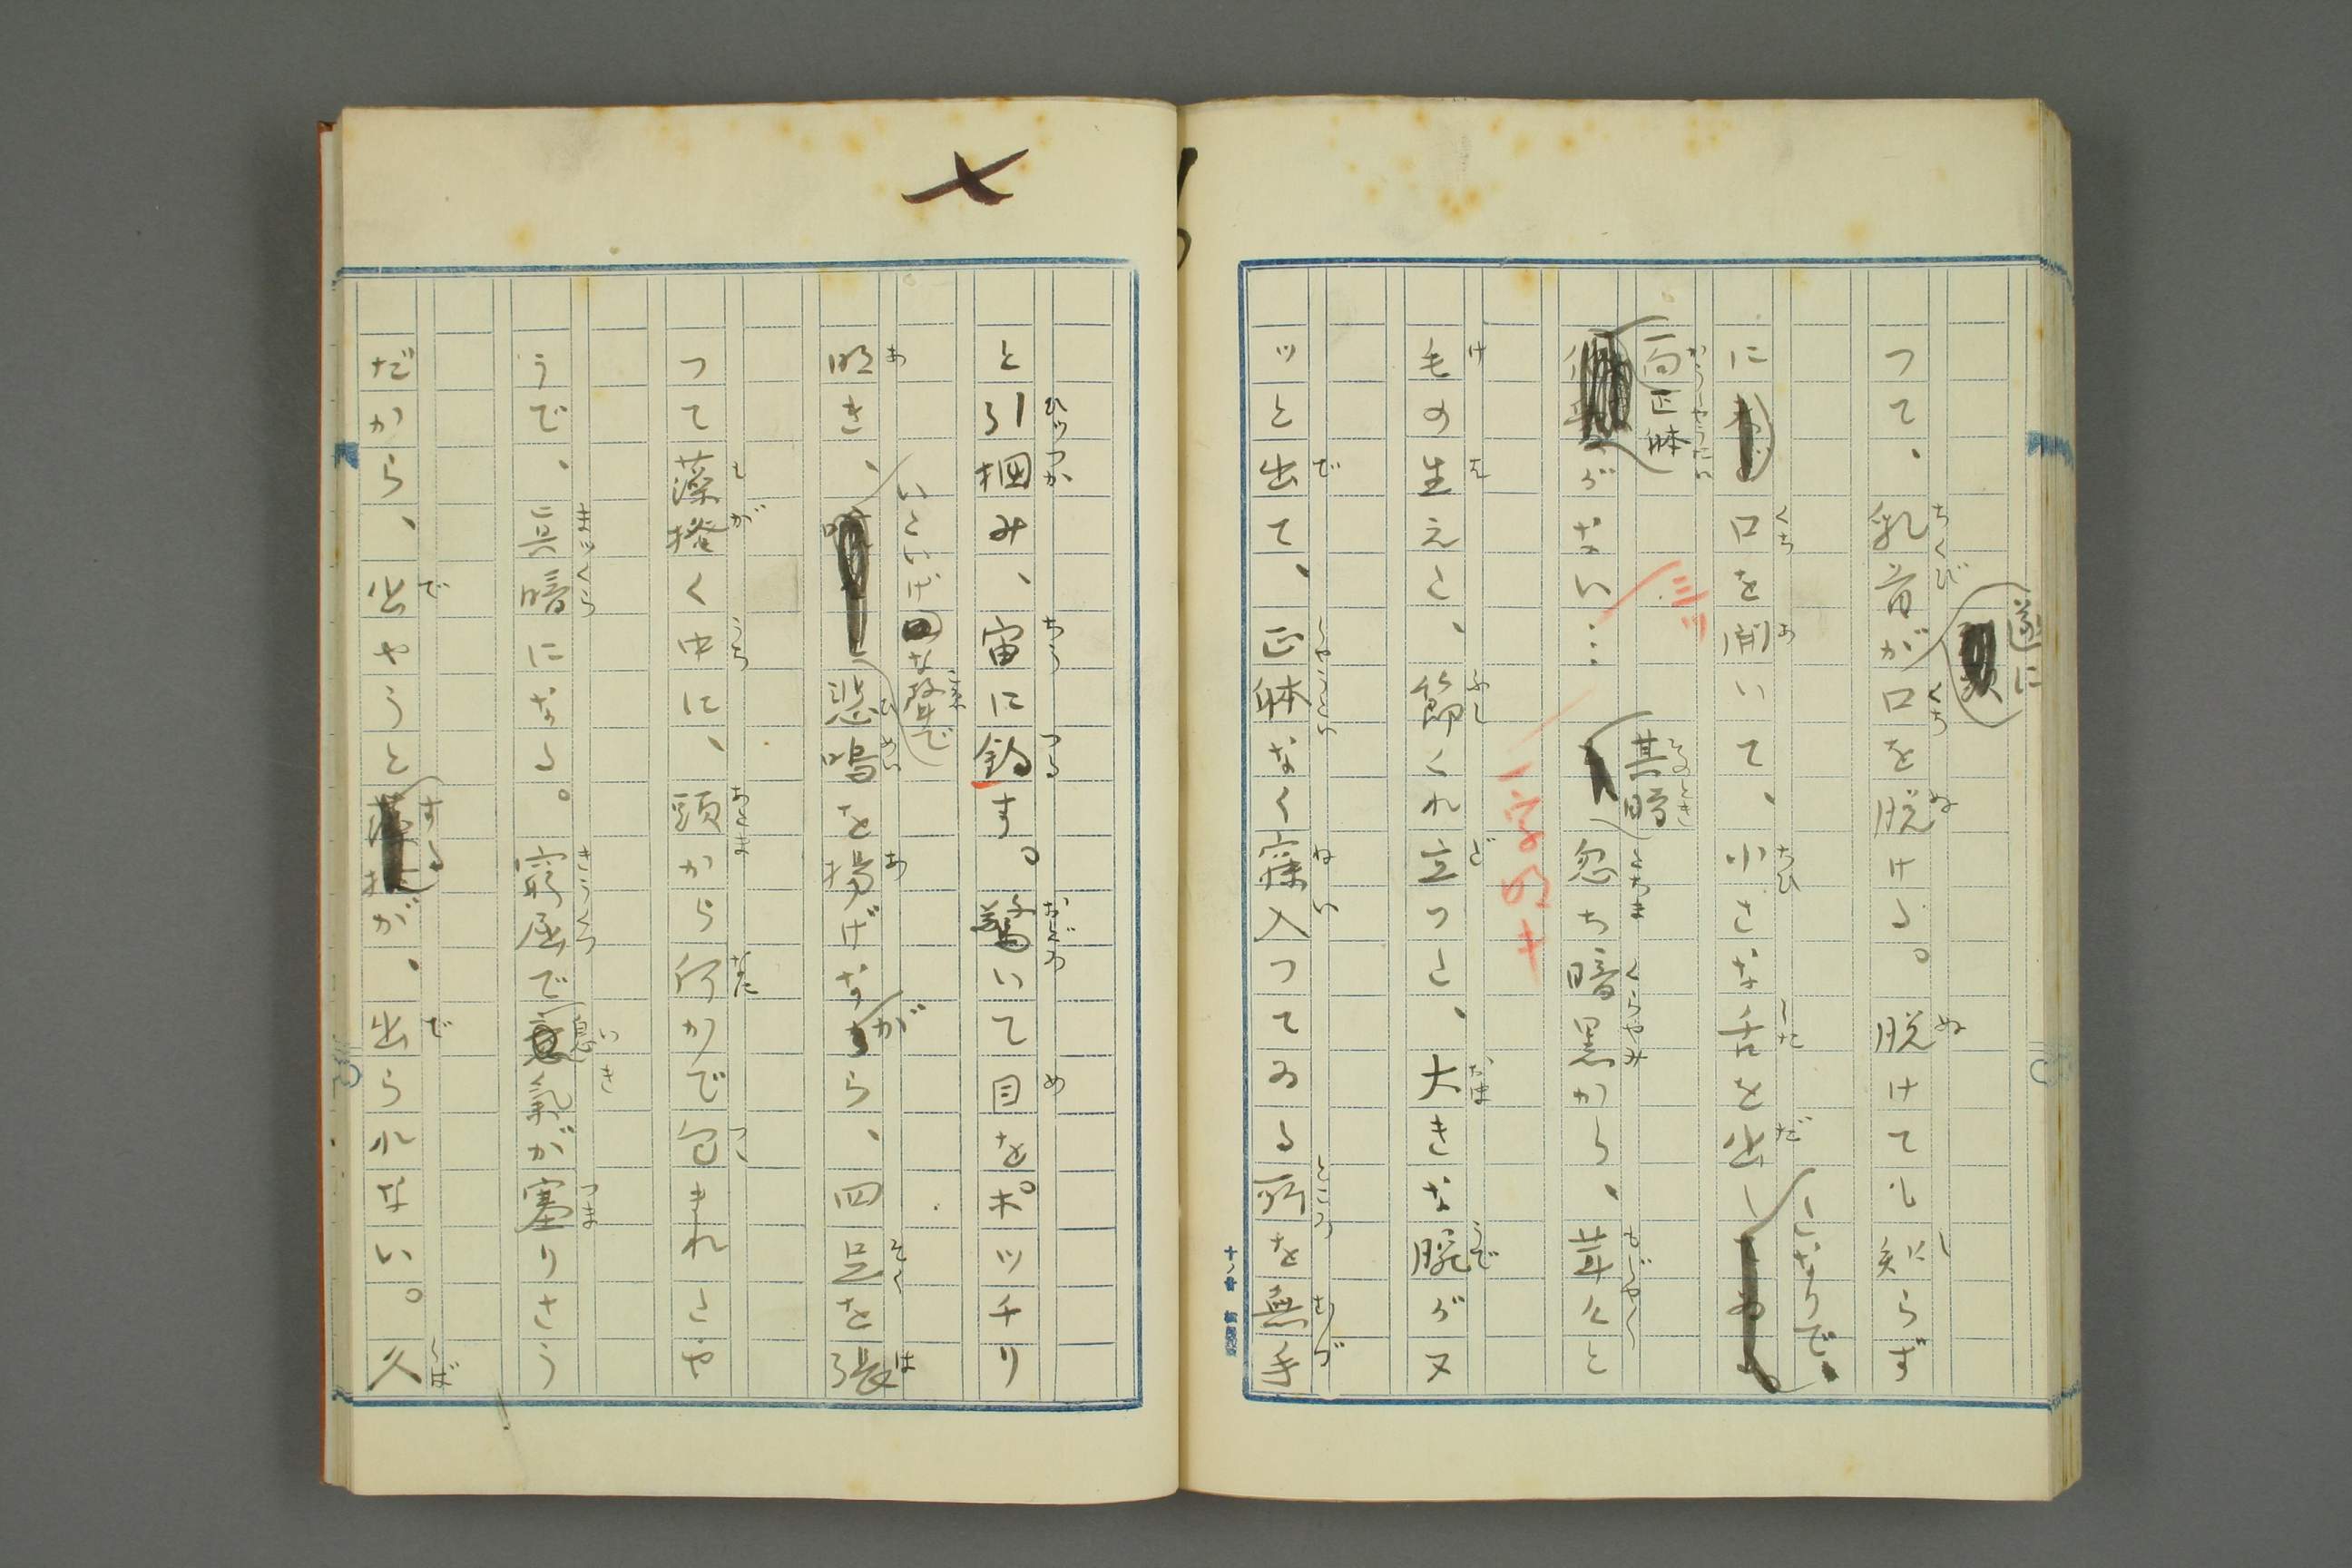 つて、乳首が遂に口を脱ける。脱けても知らず
に口を開いて、小さな舌を出したなりで、
一向正体がない…其時忽ち暗黒から、茸々と
毛の生えた、節くれ立つた、大きな腕がヌ
ッと出て、正体なく寐入つてゐる所を無手
十ノ廿
七
と引掴み、宙に釣す。驚いて目をポッチリ
明き、いたいけな聲で悲鳴を揚げながら、四足を張
つて藻掻く中に、頭から何かで包まれたや
うで、真暗になる。窮屈で息氣が塞りさう
だから、出やうとするが、出られない。久